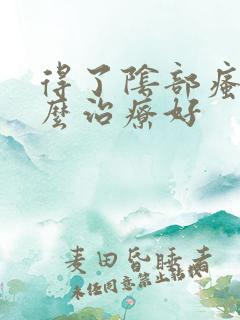 得了陰部瘙
麼治療好
麦田昏睡者
未经同意禁止转载